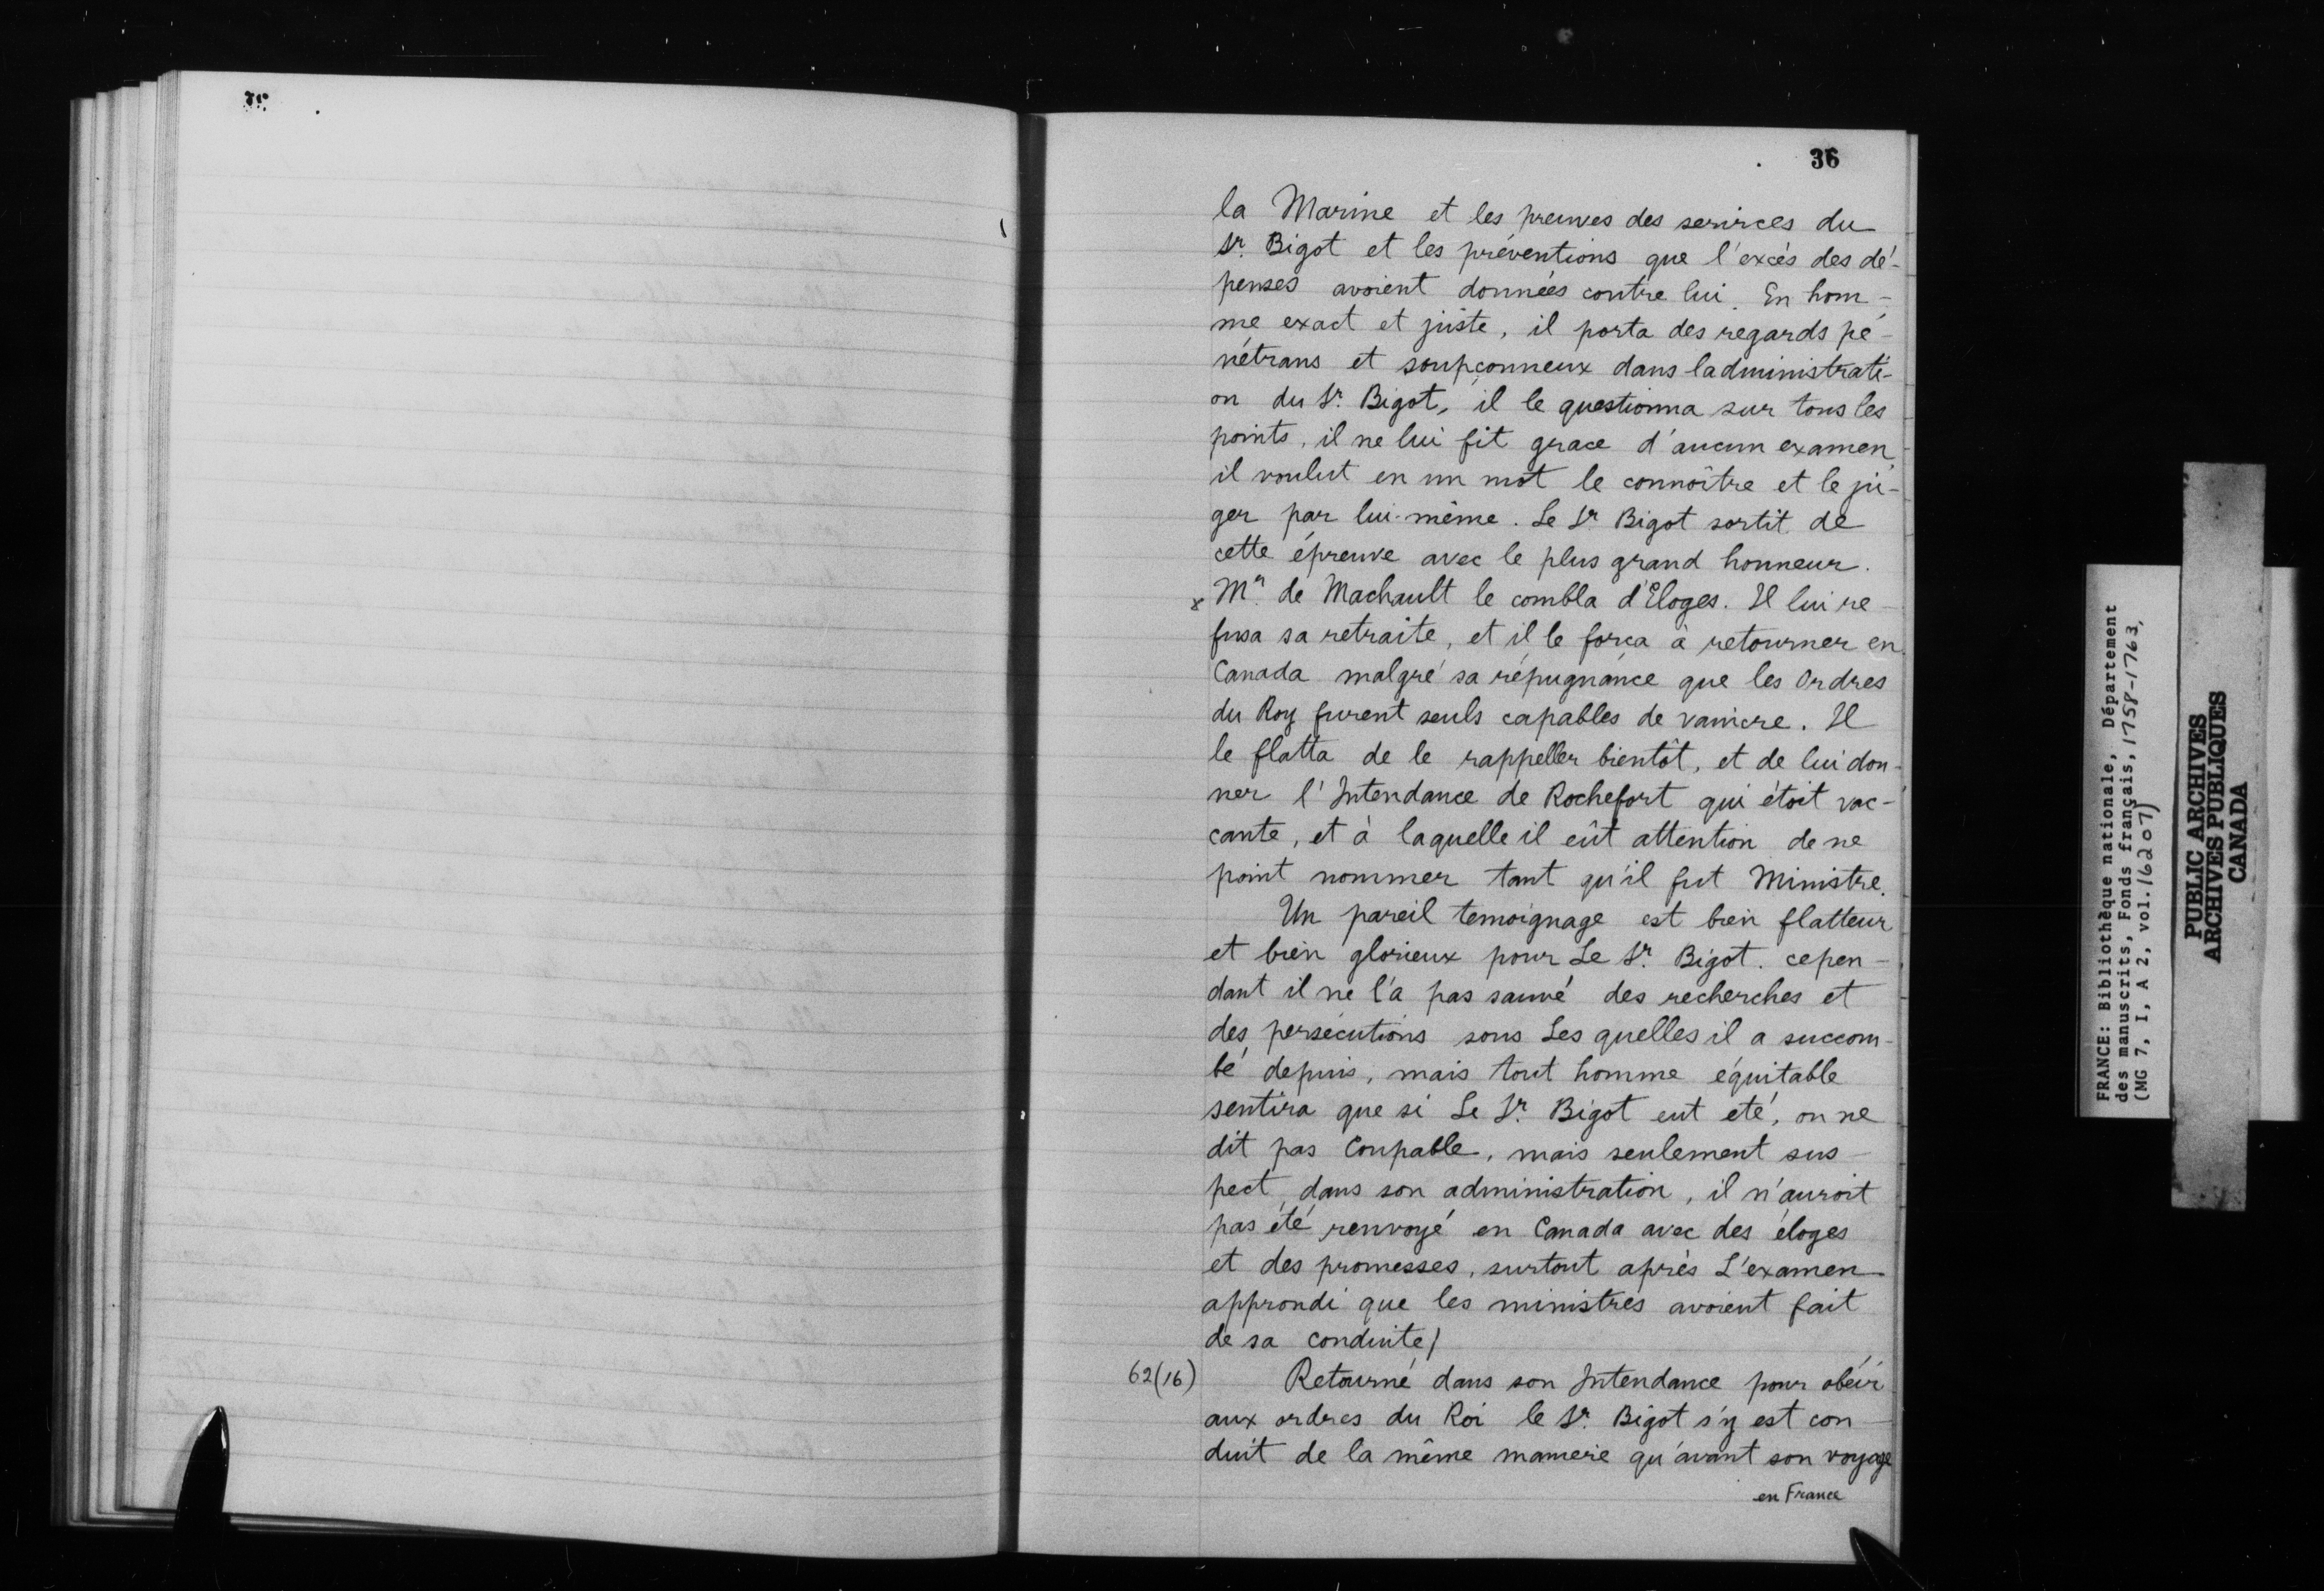 36
la Marine et les preuves des services du
Sr. Bigot et les préventions que l'excés des dé-
penses avoient données contre lui. En hom-
me exact et juste, il porta des regards pé-
nétrans et soupçonneux dans ladministrati-
on du Sr. Bigot, il le questionna sur tous les
points, il ne lui fit grace d'aucun examen,
il voulut en un mot le connoître et le ju-
ger par lui-même. Le Sr. Bigot sortit de
cette épreuve avec le plus grand honneur.
x Mr. de Machault le combla d'Eloges. Il lui re-
fusa sa retraite, et il le força à retourner en
Canada malgré sa répugnance que les Ordres
du Roy furent seuls capables de vaincre. Il
le flatta de le rappeller bientôt, et de lui don-
ner l'Intendance de Rochefort qui étoit vac-
cante, et à laquelle il eût attention de ne
point nommer tant qu'il fut Ministre.
Un pareil temoignage est bien flatteur
et bien glorieux pour Le Sr. Bigot. cepen-
dant il ne l'a pas sauvé des recherches et
des persécutions sous Les quelles il a succom-
bé depuis, mais tout homme équitable
sentira que si Le Sr. Bigot eut eté, on ne
dit pas Coupable, mais seulement sus-
pect, dans son administration, il n'auroit
pas été renvoyé en Canada avec des éloges
et des promesses, surtout après L'examen
approndi que les ministres avoient fait
de sa conduite/
62(16) Retourné dans son Intendance pour obéir
aux ordres du Roi le Sr. Bigot s'y est con-
duit de la même maniere qu'avant son voyage
en France
FRANCE: Bibliothèque nationale, Département
des manuscrits, Fonds français, 1758-1763,
(MG 7, I, A 2, vol.16207)
PUBLIC ARCHIVES
ARCHIVES PUBLIQUES
CANADA